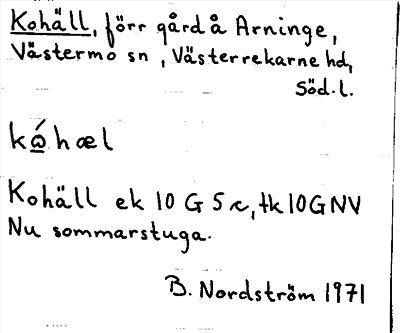 Kohäll, förr gård å Arninge,
Västermo sn, Västerrekarne hd,
Söd. l.
kǫ́hæl
Kohäll ek 10 G 5 c, tk 10 G NV
Nu sommarstuga.
B. Nordström 1971